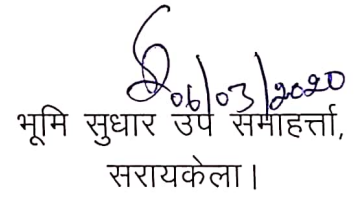 06/03/2020
भूमि सुधार उप समाहर्त्ता,
सरायकेला।